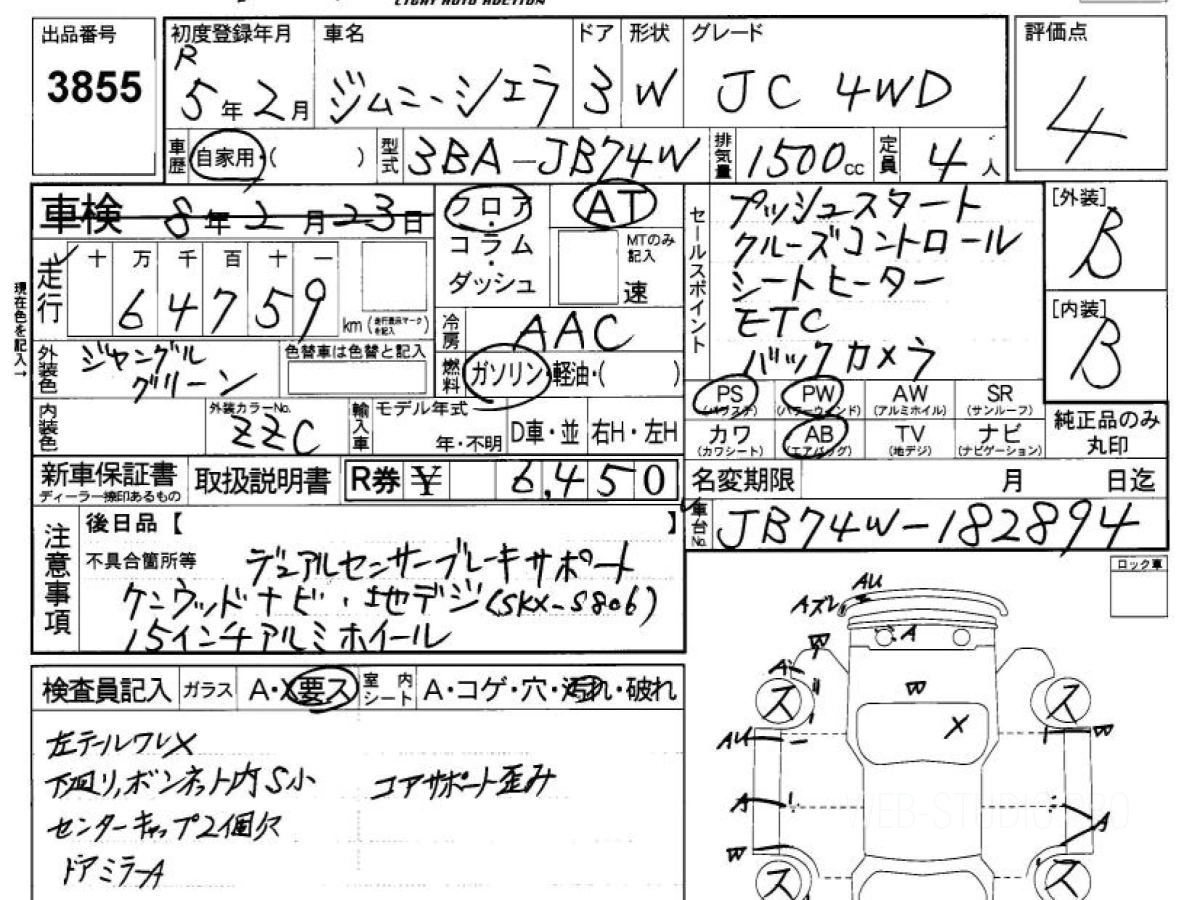 LIGHT AUTO AUCTION
出品番号 3855
初度登録年月 R 5年2月
車名 ジムニーシエラ
ドア 3
形状 W
グレード JC 4WD
評価点 4
車歴 自家用・( )
型式 3BA-JB74W
排気量 1500cc
定員 4人
車検 8年2月23日
フロア・コラム・ダッシュ
AT
MTのみ記入
速
セールスポイント
プッシュスタート
クルーズコントロール
シートヒーター
ETC
バックカメラ
[外装] B
[内装] B
現在色を記入→
走行 十 万 千 百 十 一
64759 km (走行表示マークを記入)
冷房 AAC
外装色 ジャングルグリーン
色替車は色替と記入
燃料 ガソリン・軽油・( )
PS (パワステ)
PW (パワーウィンド)
AW (アルミホイル)
SR (サンルーフ)
カワ (カワシート)
AB (エアバッグ)
TV (地デジ)
ナビ (ナビゲーション)
純正品のみ丸印
内装色
外装カラーNo. ZZC
輸入車
モデル年式 年・不明
D車・並
右H・左H
新車保証書 ディーラー捺印あるもの
取扱説明書
R券 ¥ 6,450
名変期限 月 日迄
車台No. JB74W-182894
注意事項
後日品【 】
不具合箇所等
デュアルセンサーブレーキサポート
ケンウッドナビ・地デジ(SKX-S806)
15インチアルミホイール
ロック車
検査員記入
ガラス A・X要ス
室内シート A・コゲ・穴・汚れ・破れ
左テールワレX
下廻り,ボンネット内S小
コアサポート歪み
センターキャップ2個欠
ドアミラーA
AU
Aズレ
W
A
A
W
ス
ス
X
AU
W
A
A
W
ス
ス
WEB-STUDIO PRO